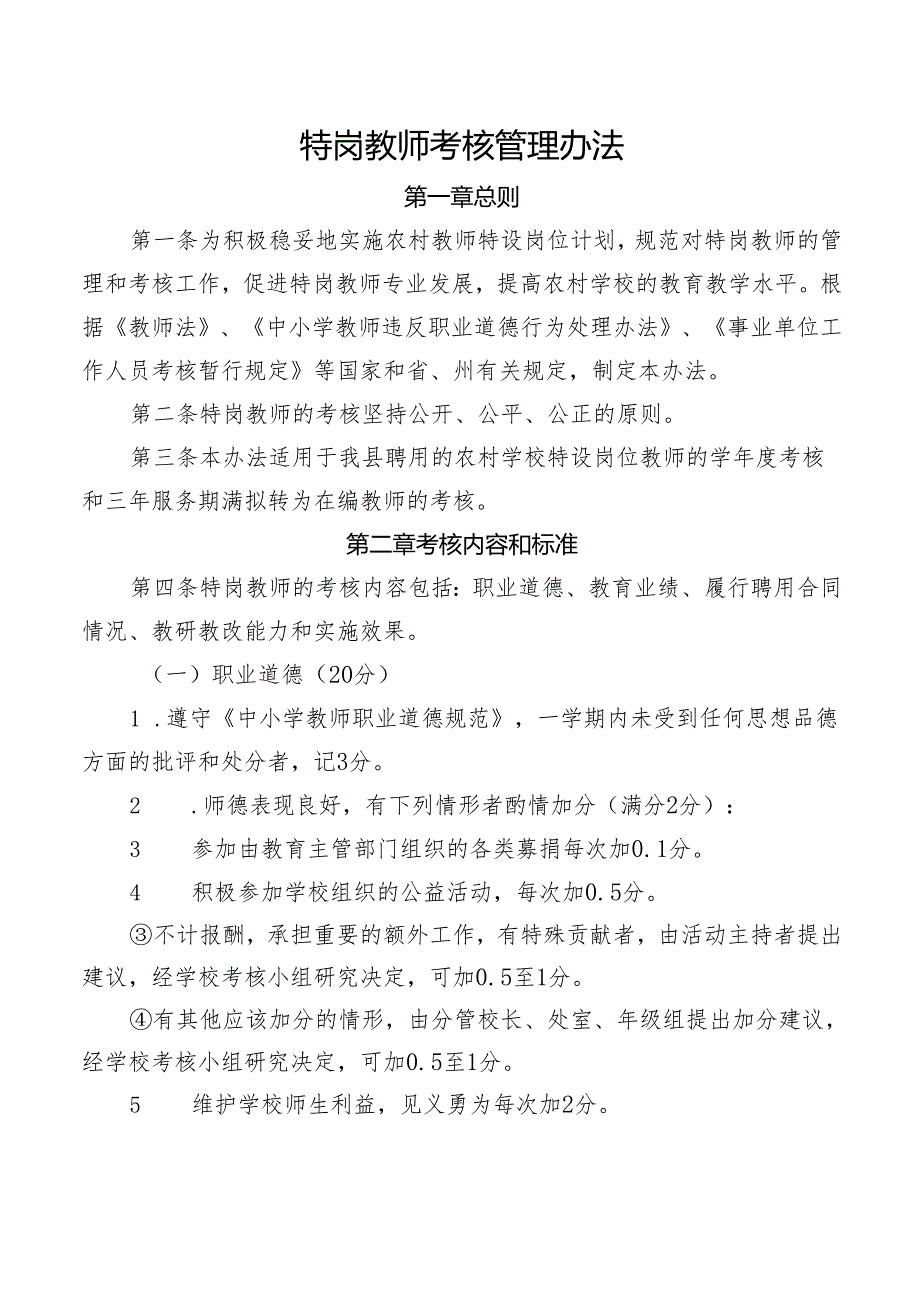 特岗教师考核管理办法
第一章总则
第一条为积极稳妥地实施农村教师特设岗位计划，规范对特岗教师的管
理和考核工作，促进特岗教师专业发展，提高农村学校的教育教学水平。根
据《教师法》、《中小学教师违反职业道德行为处理办法》、《事业单位工
作人员考核暂行规定》等国家和省、州有关规定，制定本办法。
第二条特岗教师的考核坚持公开、公平、公正的原则。
第三条本办法适用于我县聘用的农村学校特设岗位教师的学年度考核
和三年服务期满拟转为在编教师的考核。
第二章考核内容和标准
第四条特岗教师的考核内容包括：职业道德、教育业绩、履行聘用合同
情况、教研教改能力和实施效果。
（一）职业道德（20分）
1 .遵守《中小学教师职业道德规范》，一学期内未受到任何思想品德
方面的批评和处分者，记3分。
2 .师德表现良好，有下列情形者酌情加分（满分2分）：
3 参加由教育主管部门组织的各类募捐每次加0.1分。
4 积极参加学校组织的公益活动，每次加0.5分。
③不计报酬，承担重要的额外工作，有特殊贡献者，由活动主持者提出
建议，经学校考核小组研究决定，可加0.5至1分。
④有其他应该加分的情形，由分管校长、处室、年级组提出加分建议，
经学校考核小组研究决定，可加0.5至1分。
5 维护学校师生利益，见义勇为每次加2分。